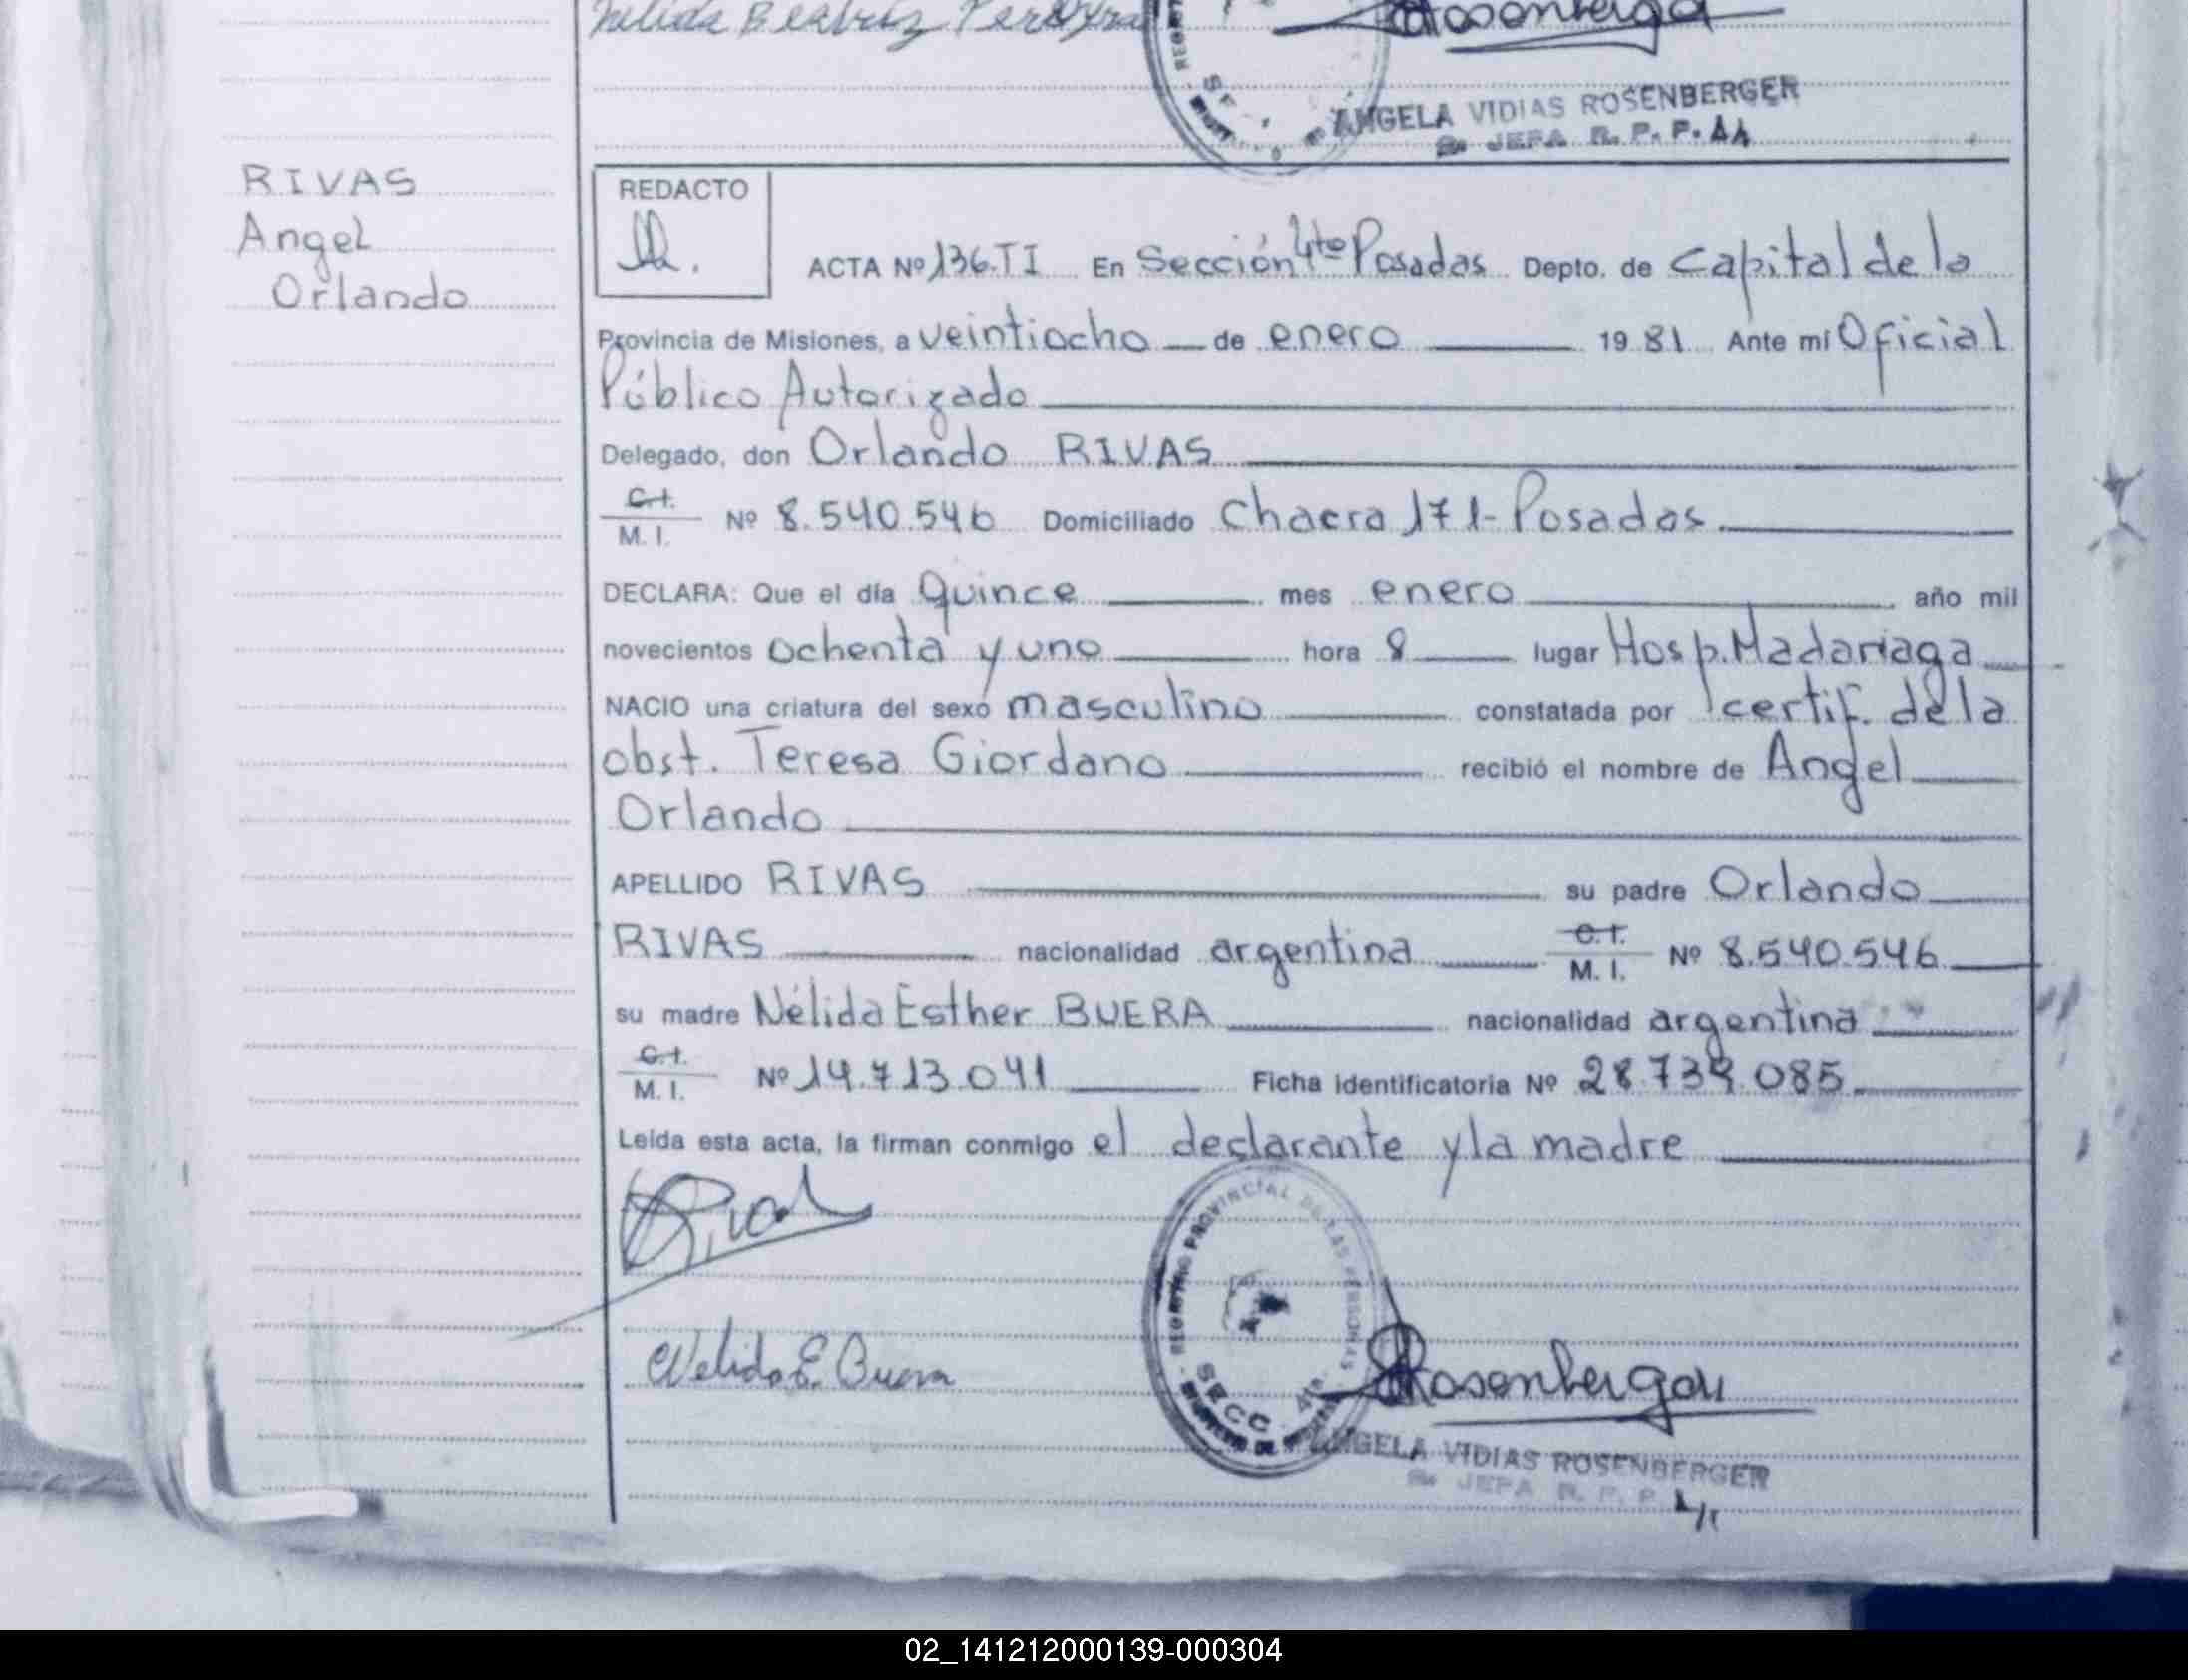 Nelida Beatriz Pereyra
Rosenberger
ANGELA VIDIAS ROSENBERGER
JEFA R. P. P.
RIVAS
Angel
Orlando
REDACTO
ACTA Nº 136.TI En Sección 4ta Posadas Depto. de Capital de la
Provincia de Misiones, a veintiocho de enero 1981 Ante mí Oficial
Público Autorizado
Delegado, don Orlando RIVAS
C.I.
M. I. Nº 8.540.546 Domiciliado Chacra 171- Posadas.
DECLARA: Que el día quince mes enero año mil
novecientos ochenta y uno hora 8 lugar Hosp. Madariaga
NACIO una criatura del sexo masculino constatada por certif. de la
obst. Teresa Giordano recibió el nombre de Angel
Orlando
APELLIDO RIVAS su padre Orlando
RIVAS nacionalidad argentina C.I. M. I. Nº 8.540.546
su madre Nélida Esther BUERA nacionalidad argentina
C.I.
M. I. Nº 14.713.041 Ficha identificatoria Nº 28.739.085
Leída esta acta, la firman conmigo el declarante y la madre
Rivas
REGISTRO PROVINCIAL DE LAS PERSONAS
SECC. 4ta
Nelida E. Buera
Rosenberger
ANGELA VIDIAS ROSENBERGER
JEFA R. P. P.
02_141212000139-000304